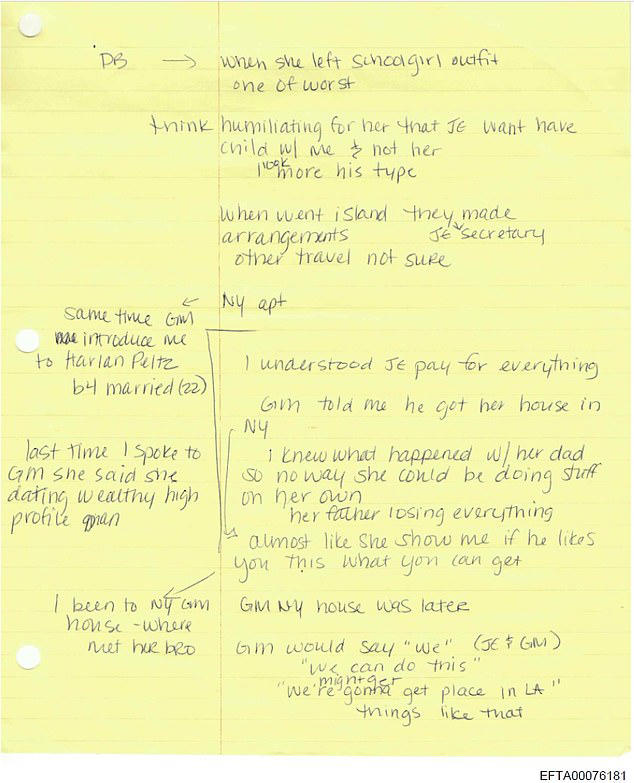 DB → when she left schoolgirl outfit
one of worst
think humiliating for her that JE want have
child w/ me & not her
I look more his type
When went island they made
arrangements JE secretary
other travel not sure
NY apt
same time GM
introduce me
to Harlan Peltz
b4 married (22)
I understood JE pay for everything
GM told me he got her house in
NY
last time I spoke to
GM she said she
dating wealthy high
profile man
I knew what happened w/ her dad
so no way she could be doing stuff
on her own
her father losing everything
almost like she show me if he likes
you this what you can get
I been to NY GM
house - where
met her bro
GM NY house was later
GM would say "we" (JE & GM)
"we can do this"
might get
"we're gonna get place in LA"
things like that
EFTA00076181